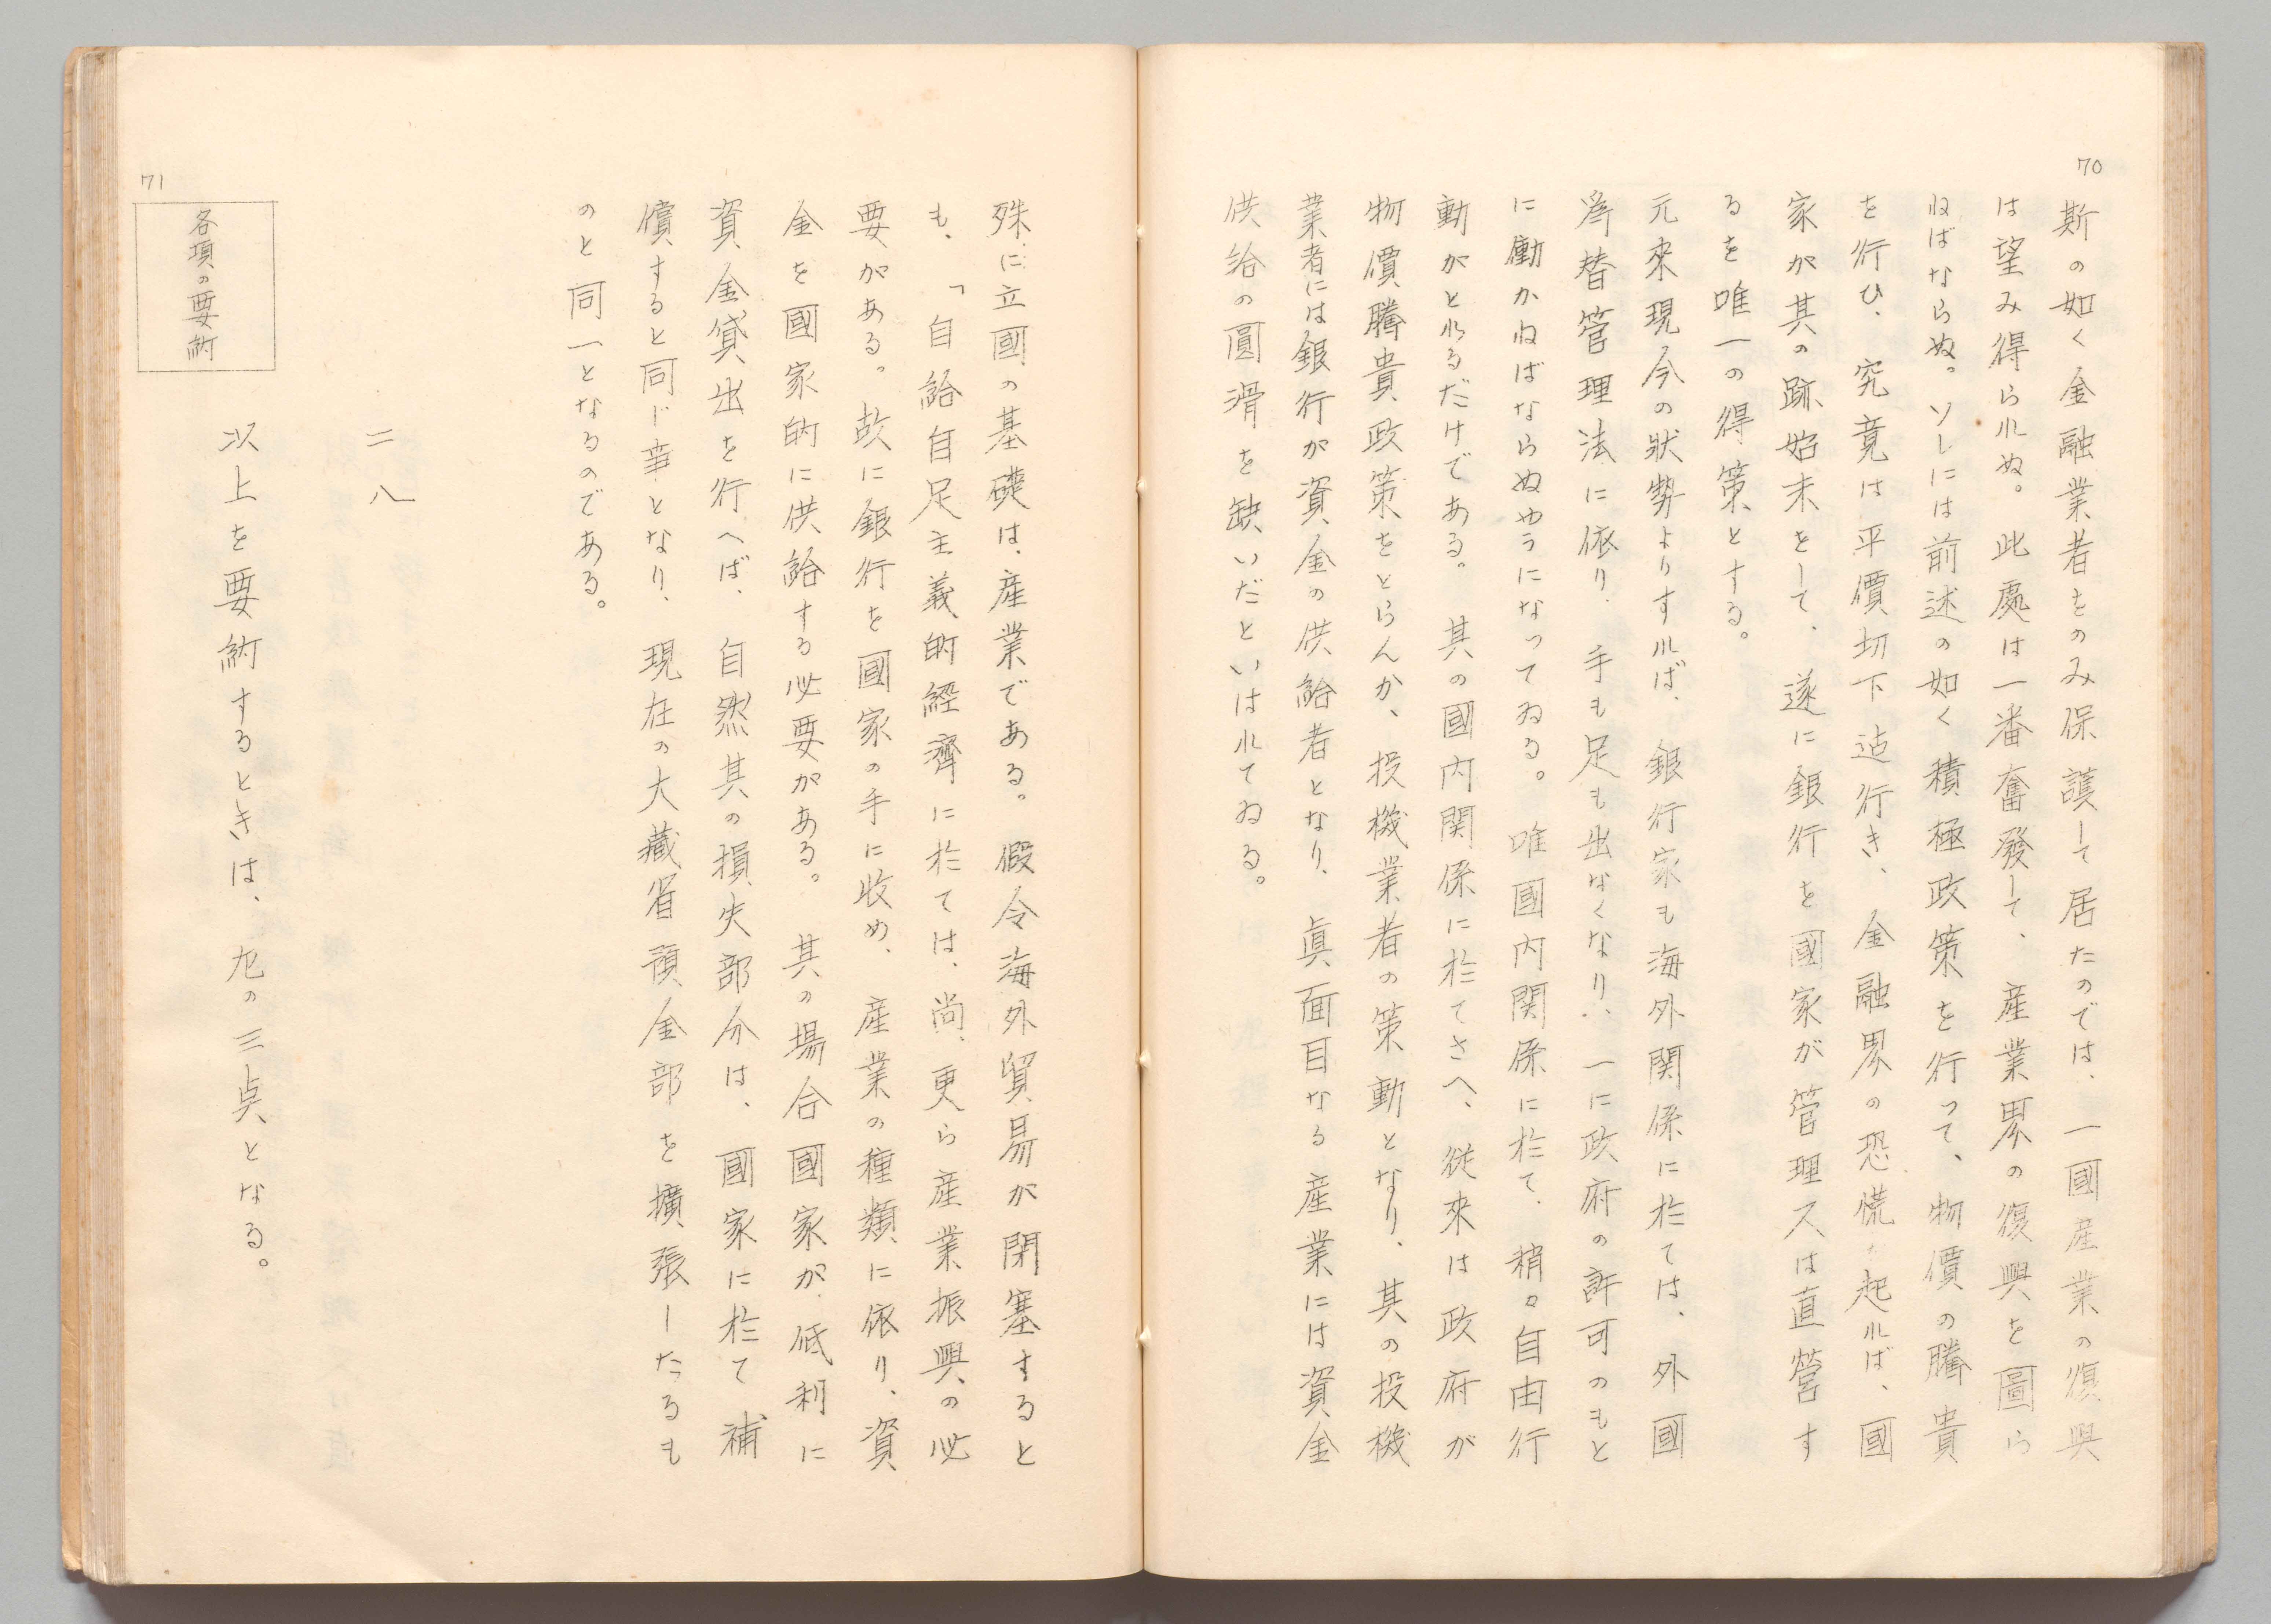 70
斯の如く金融業者をのみ保護して居たのでは、一國産業の復興
は望み得られぬ。此處は一番奮發して、産業界の復興を圖ら
ねばならぬ。ソレには前述の如く積極政策を行って、物價の騰貴
を行ひ、究竟は平價切下迠行き、金融界の恐慌が起れば、國
家が其の跡始末をして、遂に銀行を國家が管理又は直營す
るを唯一の得策とする。
元來現今の狀勢よりすれば、銀行家も海外関係に於ては、外國
為替管理法に依り、手も足も出なくなり、一に政府の許可のもと
に働かねばならぬやうになってゐる。唯國内関係に於て、稍々自由行
動がとれるだけである。其の國内関係に於てさへ、従來は政府が
物價騰貴政策をとらんか、投機業者の策動となり、其の投機
業者には銀行が資金の供給者となり、眞面目なる産業には資金
供給の圓滑を缺いだといはれてゐる。
殊に立國の基礎は、産業である。假令海外貿易が閉塞すると
も、「自給自足主義的経濟に於ては、尚、更ら産業振興の必
要がある。故に銀行を國家の手に收め、産業の種類に依り、資
金を國家的に供給する必要がある。其の場合國家が低利に
資金貸出を行へば、自然其の損失部分は、國家に於て補
償すると同じ事となり、現在の大藏省預金部を擴張したるも
のと同一となるのである。
二八
以上を要約するときは、九の三点となる。
71
各項の要約